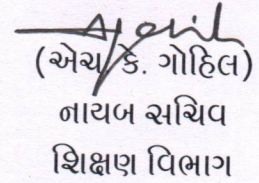 (એચ. કે. ગોહિલ)
નાયબ સચિવ
શિક્ષણ વિભાગ